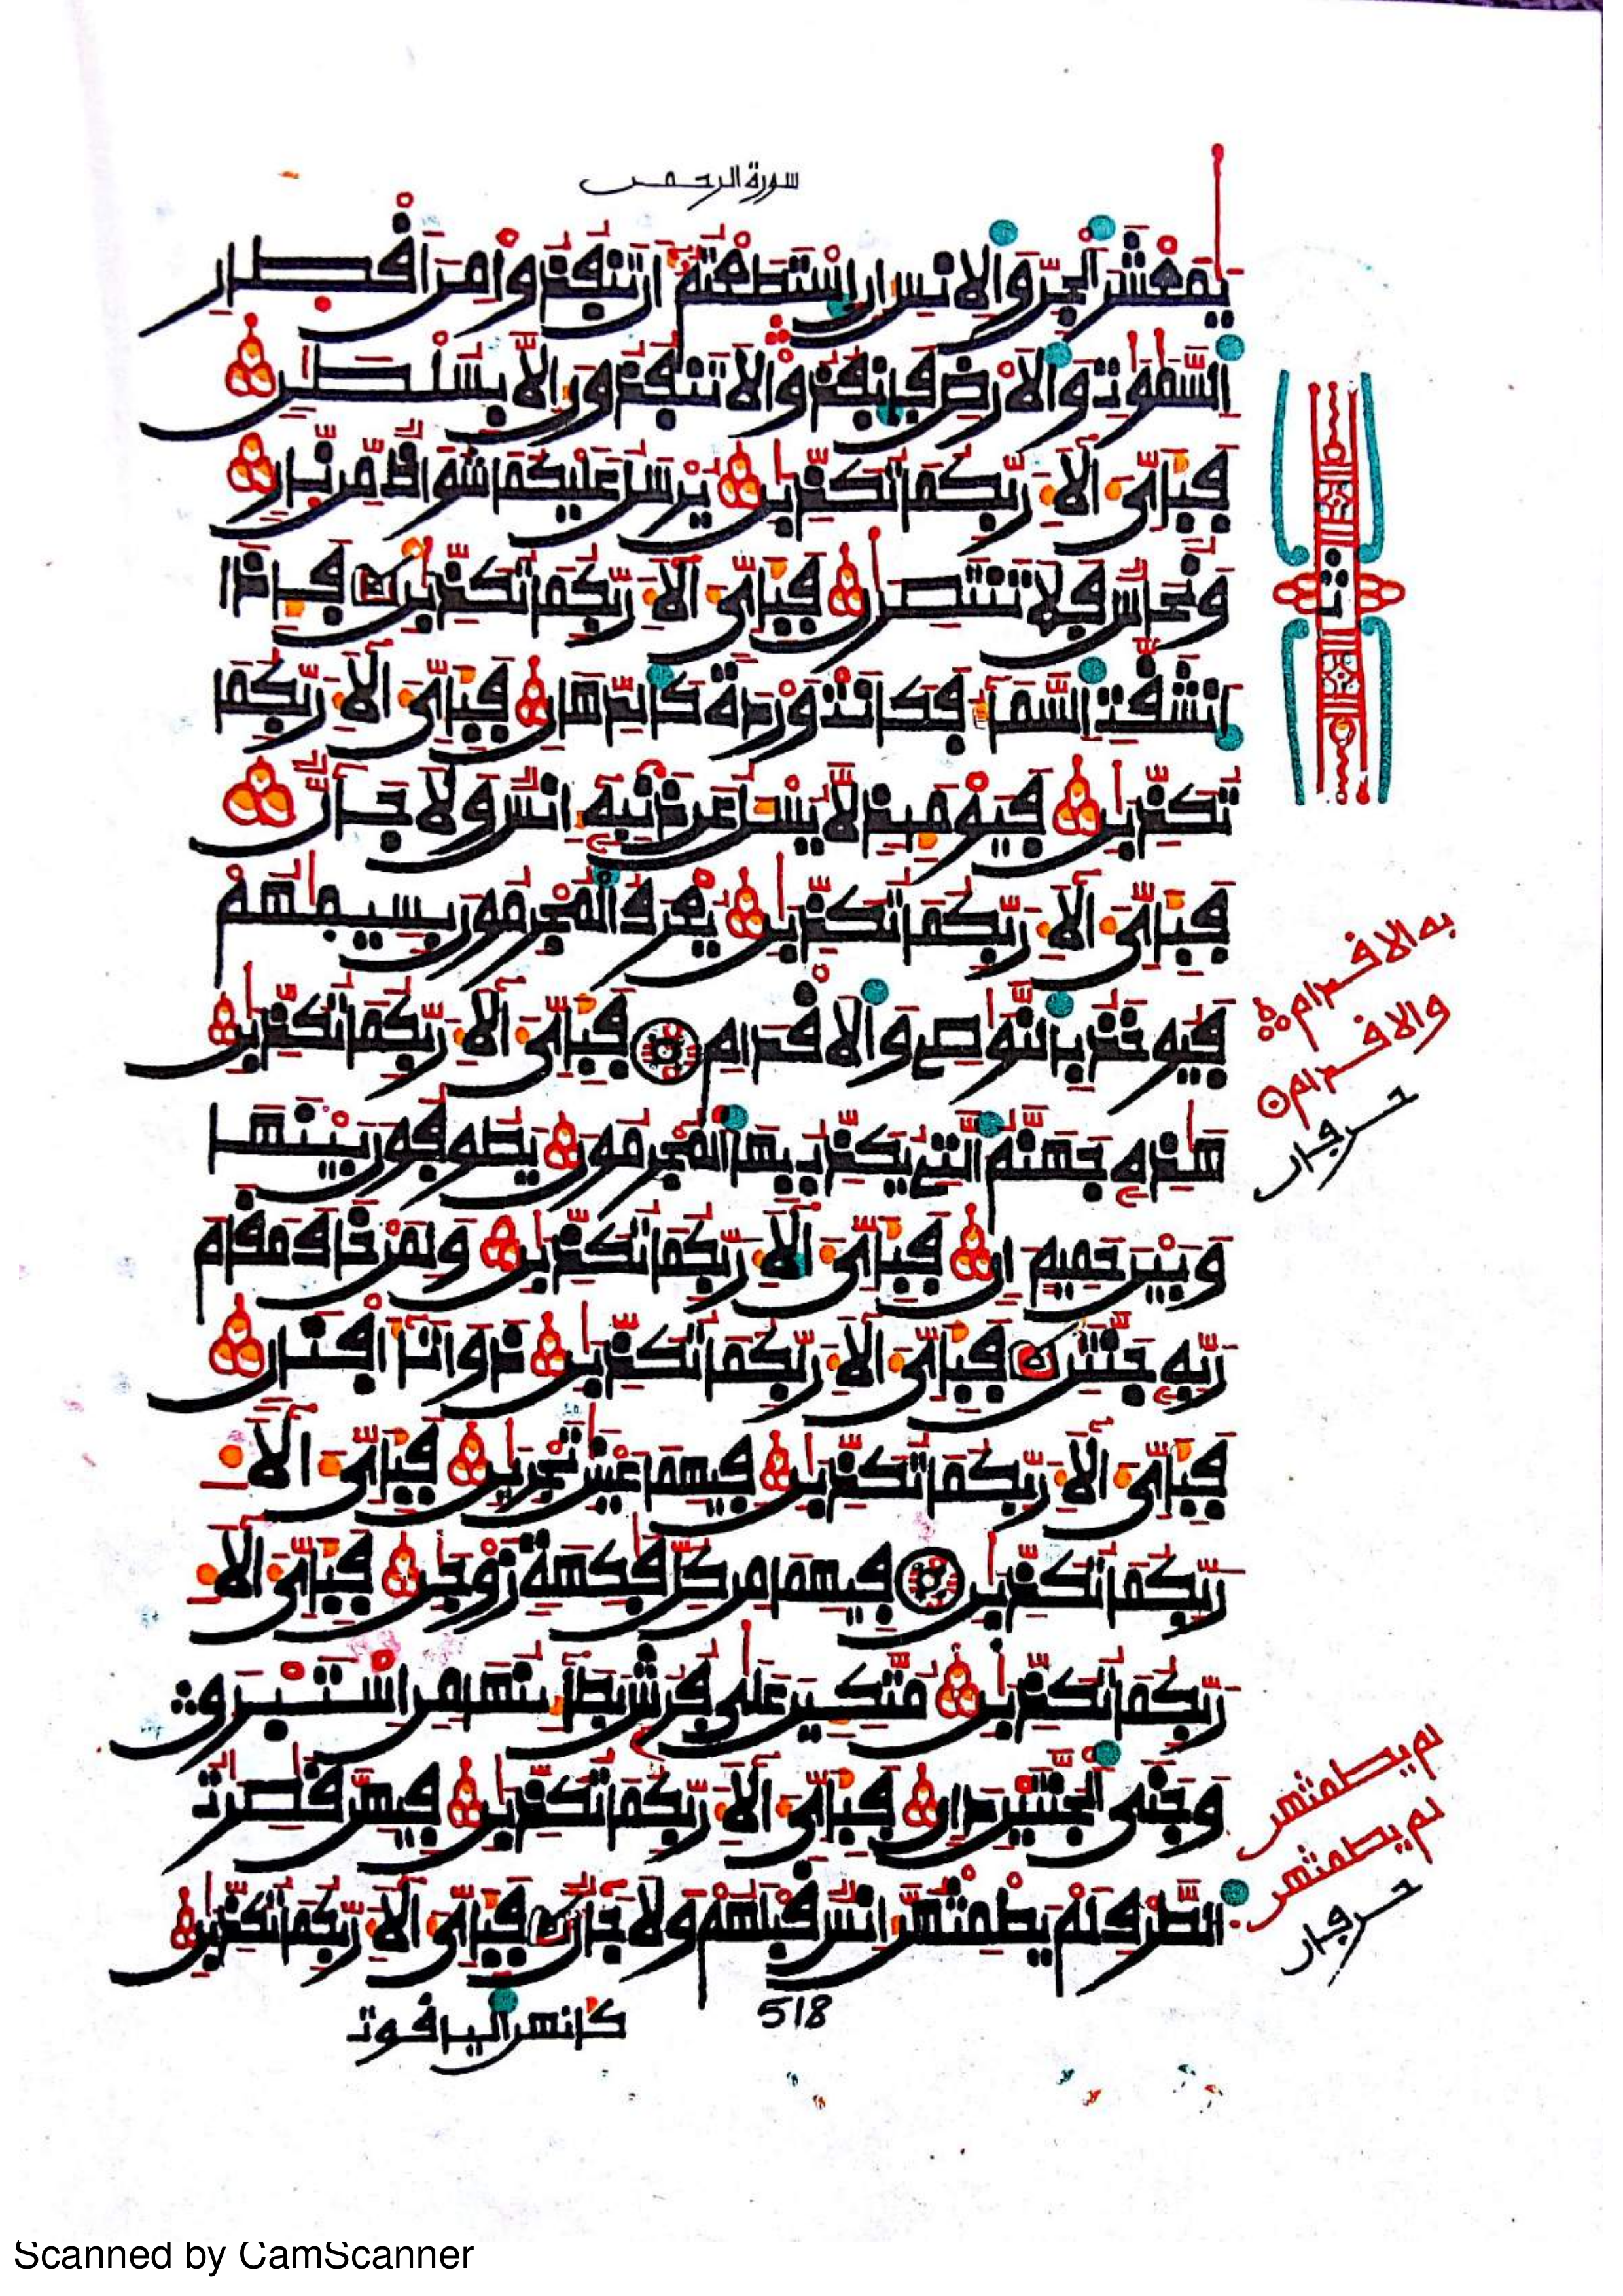 سورة الرحمن
يَٰمَعْشَرَ ٱلْجِنِّ وَٱلْإِنسِ إِنِ ٱسْتَطَعْتُمْ أَن تَنفُذُوا مِنْ أَقْطِارِ
ٱلسَّمَٰوَٰتِ وَٱلْأَرْضِ فَانفُذُوا لَا تَنفُذُونَ إِلَّا بِسُلْطَٰنٍ
فَبِأَيِّ ءَالَآءِ رَبِّكُمَا تُكَذِّبَٰنِ يُرْسَلُ عَلَيْكُمَا شُوَاظٌ مِّن نّارٍ
وَنُحَاسٌ فَلَا تَنتَصِرَٰنِ فَبِأَيِّ ءَالَآءِ رَبِّكُمَا تُكَذِّبَٰنِ فَإِذَا
ٱنشَقَّتِ ٱلسَّمَآءُ فَكَانَتْ وَرْدَةً كَٱلدِّهَانِ فَبِأَيِّ ءَالَآءِ رَبِّكُمَا
تُكَذِّبَٰنِ فَيَوْمَئِذٍ لَّا يُسْـَٔلُ عَن ذَنۢبِهِۦ إِنسٌ وَلَا جَآنٌّ
فَبِأَيِّ ءَالَآءِ رَبِّكُمَا تُكَذِّبَٰنِ يُعْرَفُ ٱلْمُجْرِمُونَ بِسِيمَٰهُمْ
فَيُوخَذُ بِٱلنَّوَٰصِي وَٱلْأَقْدَامِ فَبِأَيِّ ءَالَآءِ رَبِّكُمَا تُكَذِّبَٰنِ
هَٰذِهِۦ جَهَنَّمُ ٱلَّتِي يُكَذِّبُ بِهَا ٱلْمُجْرِمُونَ يَطُوفُونَ بَيْنَهَا
وَبَيْنَ حَمِيمٍ ءَانٍ فَبِأَيِّ ءَالَآءِ رَبِّكُمَا تُكَذِّبَٰنِ وَلِمَنْ خَافَ مَقَامَ
رَبِّهِۦ جَنَّتَٰنِ فَبِأَيِّ ءَالَآءِ رَبِّكُمَا تُكَذِّبَٰنِ ذَوَاتَآ أَفْنَانٍ
فَبِأَيِّ ءَالَآءِ رَبِّكُمَا تُكَذِّبَٰنِ فِيهِمَا عَيْنَٰنِ تَجْرِيَٰنِ فَبِأَيِّ ءَالَآءِ
رَبِّكُمَا تُكَذِّبَٰنِ فِيهِمَا مِن كُلِّ فَٰكِهَةٍ زَوْجَٰنِ فَبِأَيِّ ءَالَآءِ
رَبِّكُمَا تُكَذِّبَٰنِ مُتَّكِـِٔينَ عَلَىٰ فُرُشٍۭ بَطَآئِنُهَا مِنْ إِسْتَبْرَقٍ
وَجَنَى ٱلْجَنَّتَيْنِ دَانٍ فَبِأَيِّ ءَالَآءِ رَبِّكُمَا تُكَذِّبَٰنِ فِيهِنَّ قَٰصِرَٰتُ
ٱلطَّرْفِ لَمْ يَطْمِثْهُنَّ إِنسٌ قَبْلَهُمْ وَلَا جَآنٌّ فَبِأَيِّ ءَالَآءِ رَبِّكُمَا تُكَذِّبَٰنِ
518
كأنهن الياقوت
ثمن
به الاقدام
والاقدام
حرفان
لم يطمثهن
لم يطمثهن
حرفان
Scanned by CamScanner